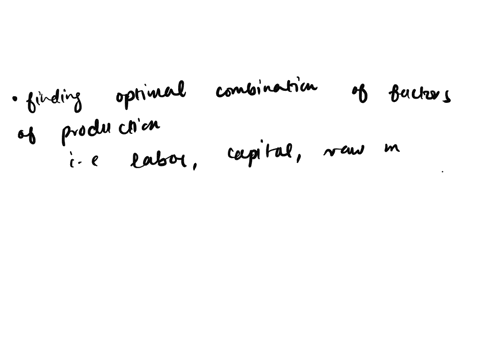 • finding optimal combination of factors
of production
i.e labor, capital, raw m